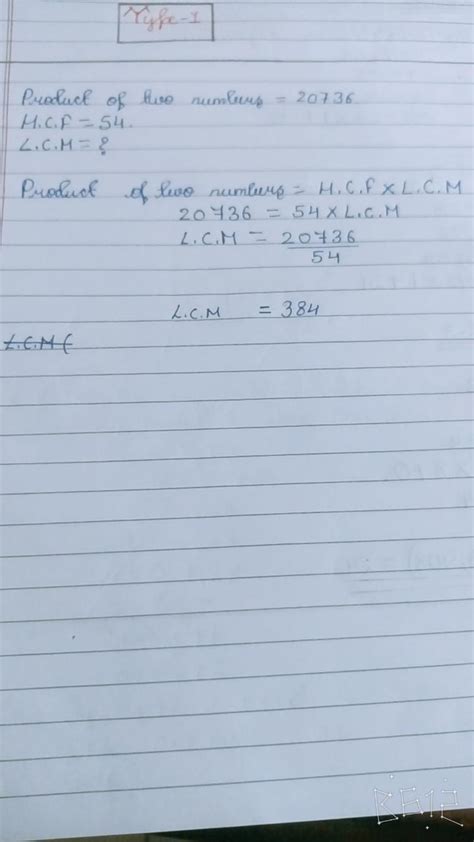 Type-1
Product of two numbers = 20736
H.C.F = 54.
L.C.M = ?
Product of two numbers = H.C.F × L.C.M
20736 = 54 × L.C.M
L.C.M = 20736
54
L.C.M = 384
L.C.M (